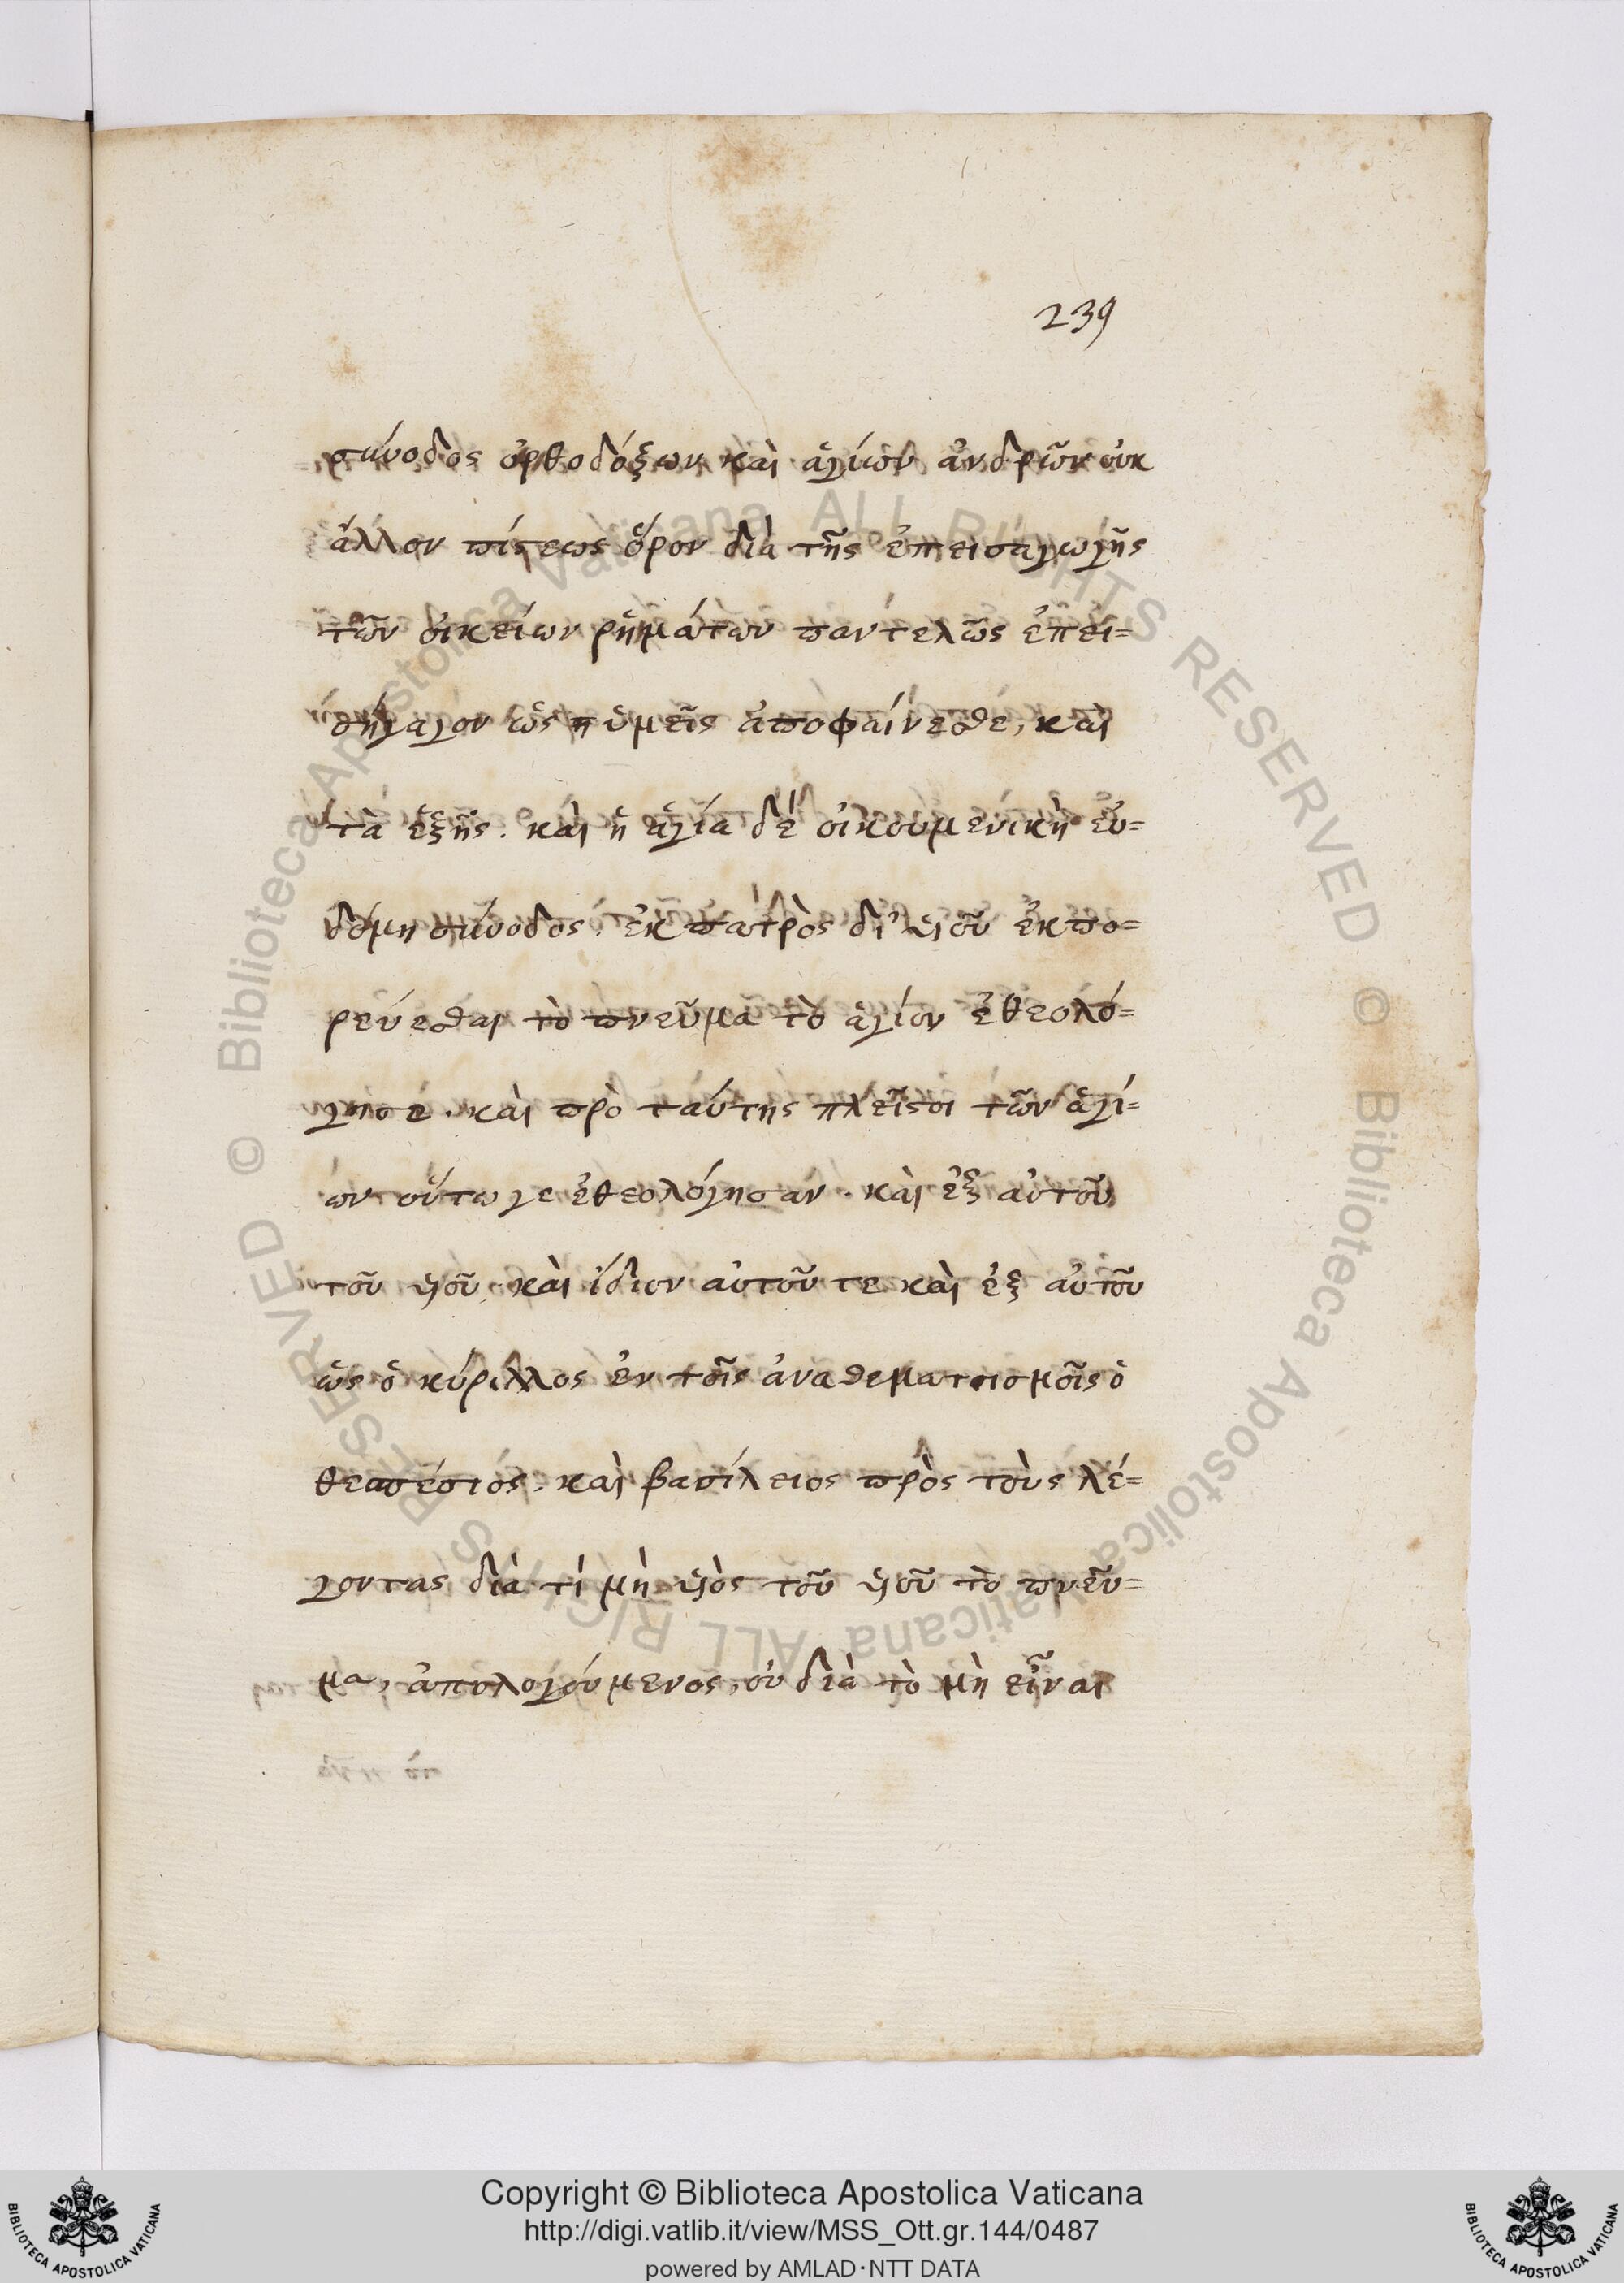 239
σύνοδος ὀρθοδόξων καὶ ἁγίων ἀνδρῶν οὐκ
ἄλλον πίστεως ὅρον διὰ τῆς ἐπεισαγωγῆς
τῶν οἰκείων ῥημάτων παντελῶς ἐπει=
σήγαγον ὡς ὑμεῖς ἀποφαίνεσθε, καὶ
τὰ ἑξῆς. καὶ ἡ ἁγία δὲ οἰκουμενικὴ ἑυ=
δόμη σύνοδος, ἐκ πατρὸς δι' υἱοῦ ἐκπο=
ρεύεσθαι τὸ πνεῦμα τὸ ἅγιον ἐθεολό=
γησε. καὶ πρὸ ταύτης πλεῖστοι τῶν ἁγί=
ων οὕτω γε ἐθεολόγησαν. καὶ ἐξ αὐτοῦ
τοῦ υἱοῦ, καὶ ἴδιον αὐτοῦ τε καὶ ἐξ αὐτοῦ
ὡς ὁ κύριλλος ἐν τοῖς ἀναθεματισμοῖς ὁ
θεσπέσιος. καὶ βασίλειος πρὸς τοὺς λέ=
γοντας διὰ τί μὴ υἱὸς τοῦ υἱοῦ τὸ πνεῦ=
μα, ἀπολογούμενος, οὐ διὰ τὸ μὴ εἶναι
© Biblioteca Apostolica Vaticana ALL RIGHTS RESERVED © Biblioteca Apostolica Vaticana ALL RIGHTS RESERVED
BIBLIOTECA APOSTOLICA VATICANA
Copyright © Biblioteca Apostolica Vaticana
http://digi.vatlib.it/view/MSS_Ott.gr.144/0487
powered by AMLAD·NTT DATA
BIBLIOTECA APOSTOLICA VATICANA